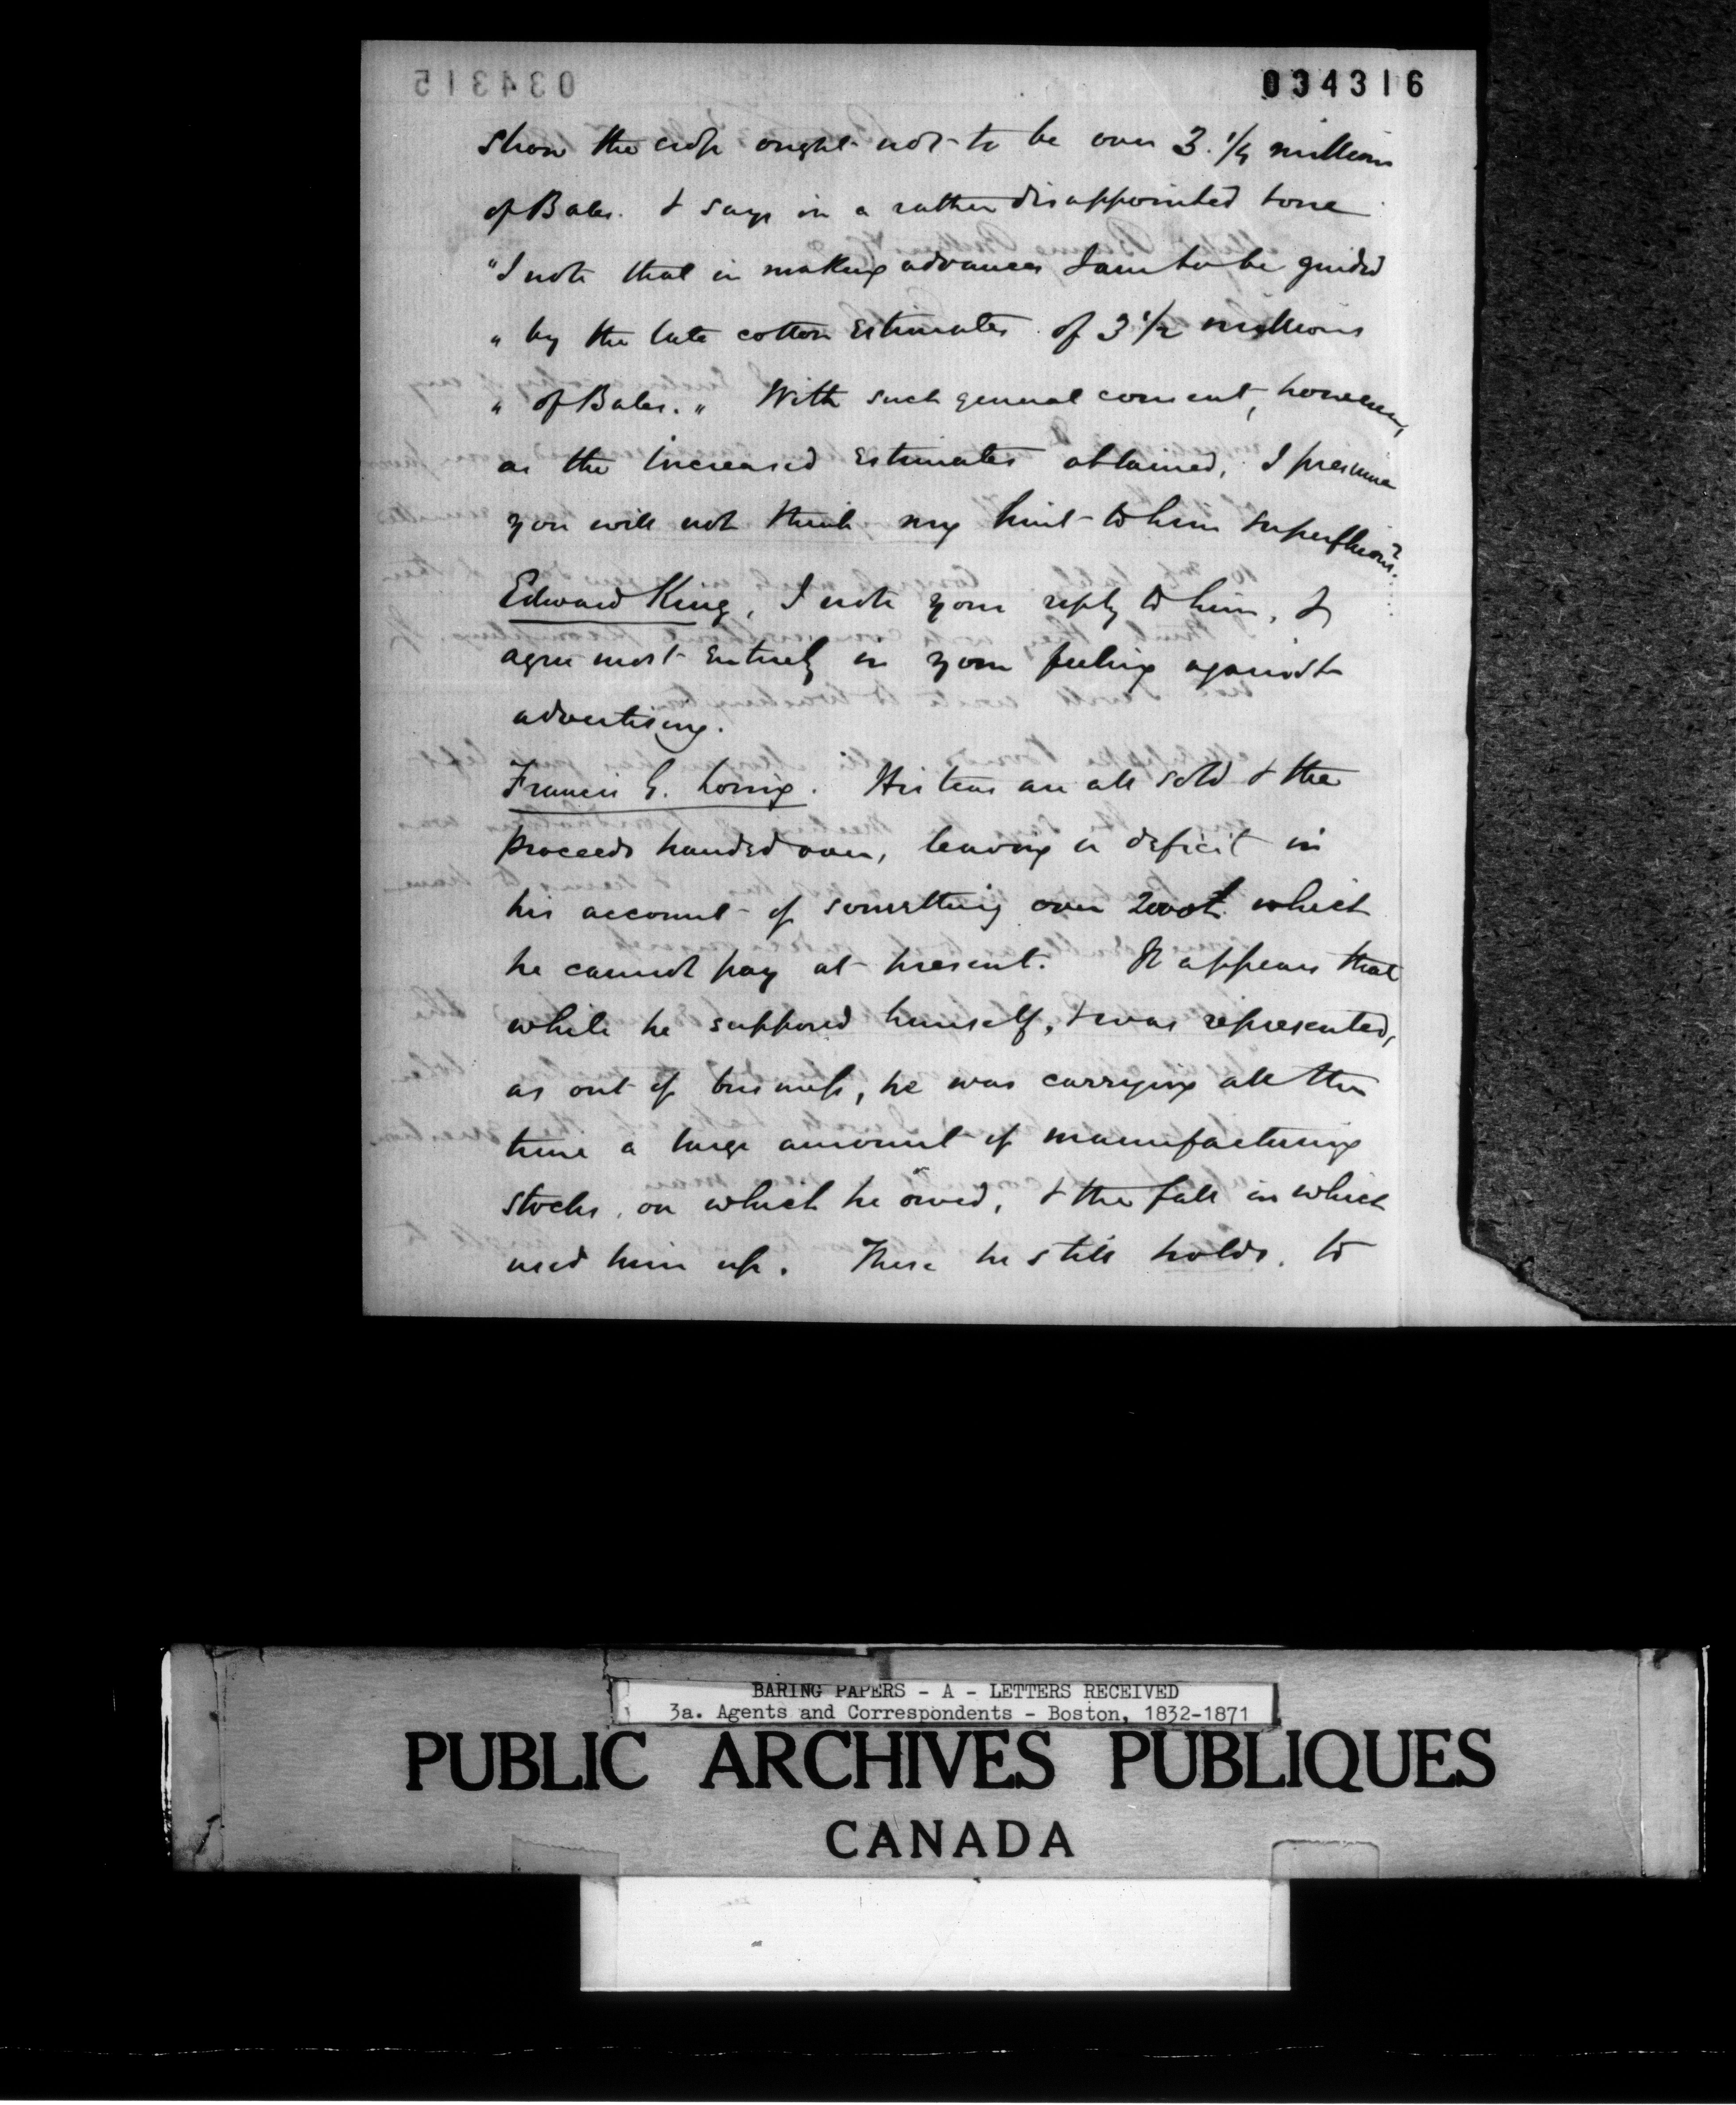 034316
show the crop ought not to be over 3.1/4 millions
of Bales. & says in a rather disappointed tone
"I note that in making advances I am to be guided
" by the late cotton Estimates of 3 1/2 millions
" of Bales." With such general consent, however,
as the increased Estimates obtained, I presume
you will not think my hint to him superfluous.
Edward King, I note your reply to him, &
agree most Entirely in your feeling against
advertising.
Francis G. Loring. His teas are all sold & the
proceeds handed over, leaving a deficit in
his account of something over 2000£ which
he cannot pay at present. It appears that
while he supposed himself, & was represented,
as out of business, he was carrying all the
time a large amount of manufacturing
stocks, on which he owed, & the fall in which
used him up. These he still holds, to
BARING PAPERS - A - LETTERS RECEIVED
3a. Agents and Correspondents - Boston, 1832-1871
PUBLIC ARCHIVES PUBLIQUES
CANADA